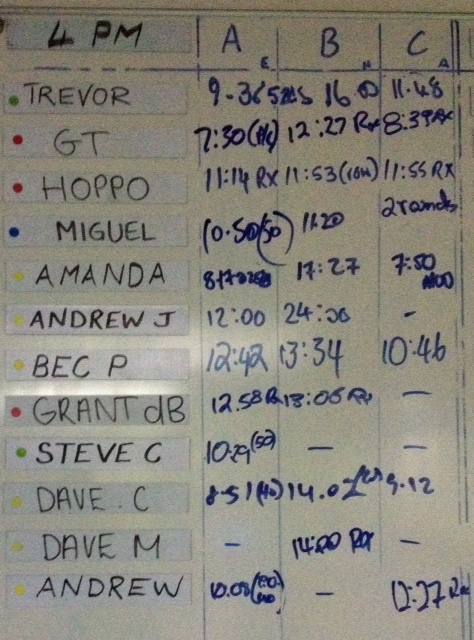 4 PM A B C
E H A
TREVOR 9.36 16 11.48
GT 7:30 12:27 Rx 8:39 Rx
HOPPO 11:14 RX 11:53 (10H) 11:55 RX
MIGUEL 10.50 (50) 11:20 2 rounds
AMANDA 17:27 7:50 MOD
ANDREW J 12:00 24:00 -
BEC P 12:42 13:34 10:46
GRANT dB 12.58 Rx 13:06 Rx -
STEVE C 10.29 (50) - -
DAVE. C 8.51 (40) 14.02 9.12
DAVE M - 14:00 RX -
ANDREW 10.08 - 12:27 Rx